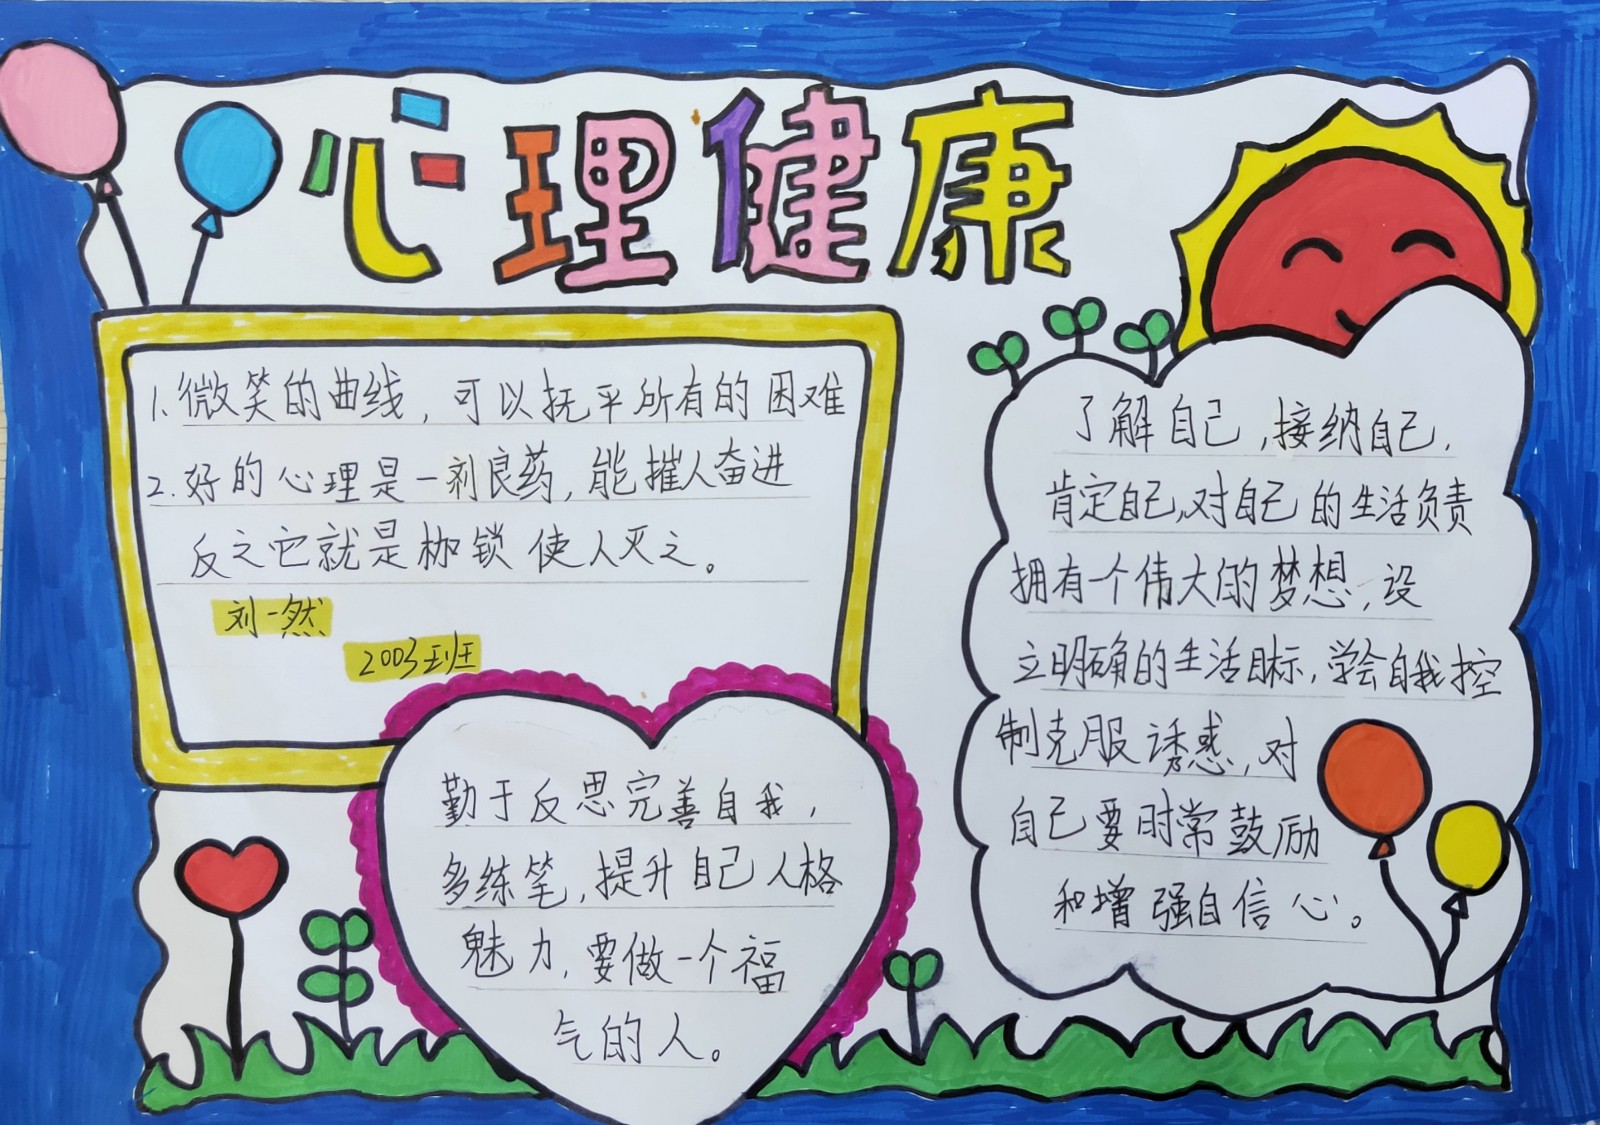 心理健康
1.微笑的曲线，可以抚平所有的困难
2.好的心理是一剂良药，能摧人奋进
反之它就是枷锁使人灭之。
刘一然
2003班
勤于反思完善自我，
多练笔，提升自己人格
魅力，要做一个福
气的人。
了解自己，接纳自己，
肯定自己，对自己的生活负责
拥有一个伟大的梦想，设
立明确的生活目标，学会自我控
制克服诱惑，对
自己要时常鼓励
和增强自信心。